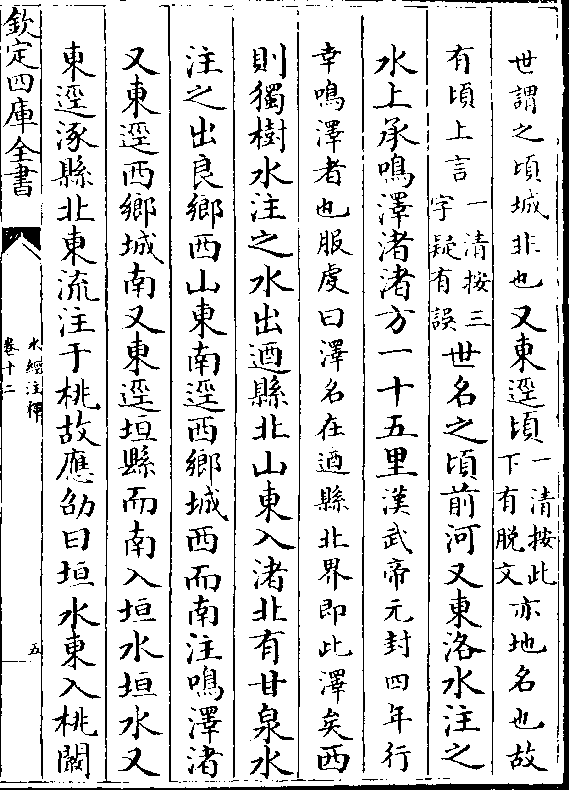 世謂之頃城非也又東逕頃一清按此下有脫文亦地名也故
有頃上言一清按三字疑有誤世名之頃前河又東洛水注之
水上承鳴澤渚渚方一十五里漢武帝元封四年行
幸鳴澤者也服虔曰澤名在遒縣北界即此澤矣西
則獨樹水注之水出遒縣北山東入渚北有甘泉水
注之出良鄉西山東南逕西鄉城西而南注鳴澤渚
又東逕西鄉城南又東逕垣縣而南入垣水垣水又
東逕涿縣北東流注于桃故應劭曰垣水東入桃闞
欽定四庫全書
水經注釋
卷十二
五